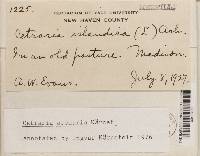 1225.
HERBARIUM OF YALE UNIVERSITY
NEW HAVEN COUNTY
Cetraria islandica (L.) Ach.
In an old pasture. Madison.
A. W. Evans. July 8, 1927
Cetraria arenaria Kärnef.
Annotated by Ingvar Kärnefelt 1976